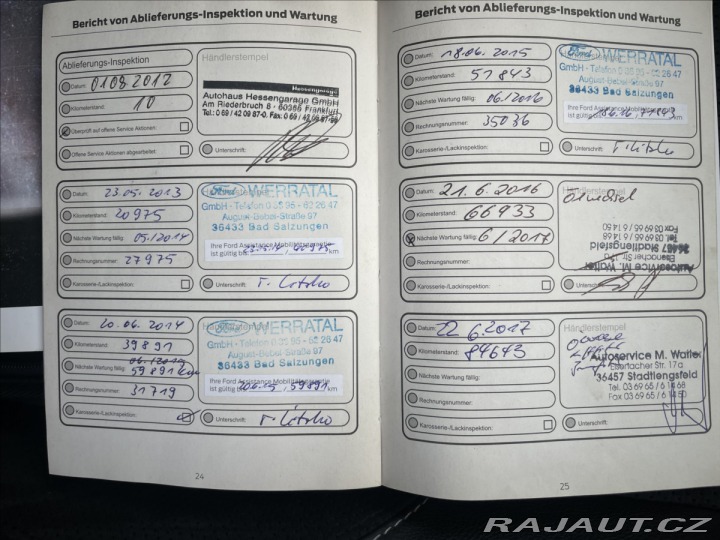 Bericht von Ablieferungs-Inspektion und Wartung
Ablieferungs-Inspektion
Datum: 01082012
Kilometerstand: 10
Überprüft auf offene Service Aktionen
Offene Service Aktionen abgearbeitet:
Händlerstempel
Hessengarage
Autohaus Hessengarage GmbH
Am Riederbruch 8 - 60386 Frankfurt
Tel.: 0 69 / 42 09 87-0
Unterschrift:
Datum: 23.05.2013
Kilometerstand: 20975
Nächste Wartung fällig: 05/2014
Rechnungsnummer: 27975
Karosserie-/Lackinspektion:
Ford WERRATAL
GmbH - Telefon 0 36 95 - 62 26 47
August-Bebel-Straße 97
36433 Bad Salzungen
Ihre Ford Assistance Mobilitätsgarantie
ist gültig bis km
Unterschrift:
Datum: 20.06.2014
Kilometerstand: 39891
Nächste Wartung fällig: 06/2015
59891 km
Rechnungsnummer: 31719
Karosserie-/Lackinspektion:
Ford WERRATAL
GmbH - Telefon 0 36 95 - 62 26 47
August-Bebel-Straße 97
36433 Bad Salzungen
Ihre Ford Assistance Mobilitätsgarantie
ist gültig bis 59891 km
Unterschrift:
24
Bericht von Ablieferungs-Inspektion und Wartung
Datum: 18.06.2015
Kilometerstand: 51843
Nächste Wartung fällig: 06/2016
Rechnungsnummer: 35036
Karosserie-/Lackinspektion:
Ford WERRATAL
GmbH - Telefon 0 36 95 - 62 26 47
August-Bebel-Straße 97
36433 Bad Salzungen
Ihre Ford Assistance Mobilitätsgarantie
ist gültig bis km
Unterschrift:
Datum: 21.6.2016
Kilometerstand: 66933
Nächste Wartung fällig: 6/2017
Rechnungsnummer:
Karosserie-/Lackinspektion:
Händlerstempel
Ölwechsel
Autoservice M. Watler
Eisenacher Str. 17a
36457 Stadtlengsfeld
Tel. 03 69 65 / 6 14 68
Fax 03 69 65 / 6 14 50
Unterschrift:
Datum: 22.6.2017
Kilometerstand: 84643
Nächste Wartung fällig:
Rechnungsnummer:
Karosserie-/Lackinspektion:
Händlerstempel
Autoservice M. Watler
Eisenacher Str. 17a
36457 Stadtlengsfeld
Tel. 03 69 65 / 6 14 68
Fax 03 69 65 / 6 14 50
Unterschrift:
25
RAJAUT.CZ